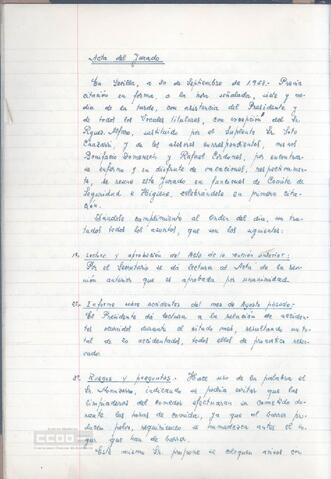 Acta del Jurado
En Sevilla, a 20 de Septiembre de 1968.- Previa
citación en forma, a la hora señalada, siete y me-
dia de la tarde, con asistencia del Presidente y
de todos los Vocales titulares, con excepción del Sr.
Reyes Alfaro, sustituido por el Suplente Sr. Soto
y de los asesores correspondientes, menos
Bonifacio y Rafael Cordones, por encontrarse
enfermo y en disfrute de vacaciones, respectivamen-
te, se reune este Jurado en funciones de Comité de
Seguridad e Higiene, celebrándola en primera cita-
ción.
Dándole cumplimiento al Orden del día, son tra-
tados todos los asuntos, que son los siguientes:
1º.- Lectura y aprobación del Acta de la reunión anterior:
Por el Secretario se da lectura al Acta de la reu-
nión anterior que es aprobada por unanimidad.
2º.- Informe sobre accidentes del mes de Agosto pasado:-
El Presidente da lectura a la relación de acciden-
tes ocurridos durante el citado mes, resultando un to-
tal de 20 accidentados, todos ellos de pronóstico reser-
vado.
3º.- Ruegos y preguntas.- Hace uso de la palabra el
Sr. indicando se podría evitar que los
limpiadores del comedor efectuaran su cometido du-
rante las horas de comidas, ya que al barrer pro-
ducen polvo, se humedezca antes el lu-
gar que han de barrer.
Este mismo Sr. propone se coloquen avisos con
CCOO